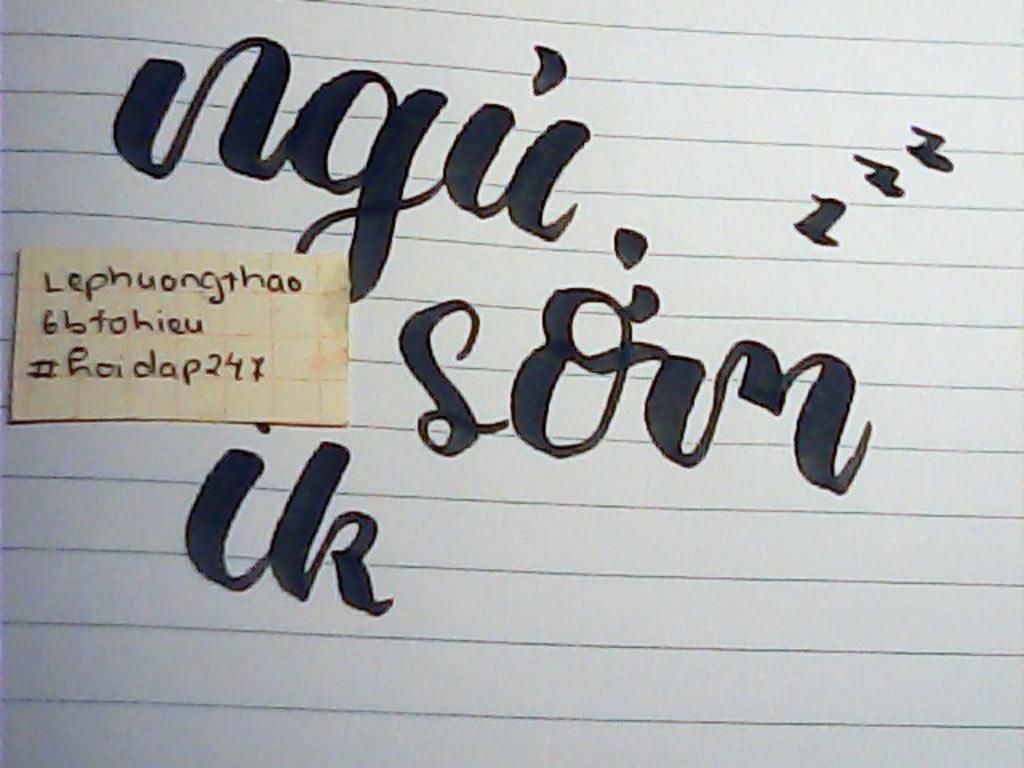 ngủ
z z z
sớm
Lephuongthao
6btohieu
#hoidap247
ik